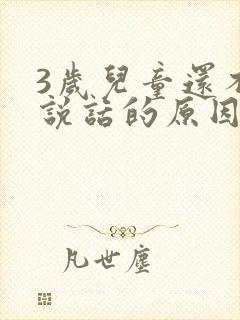 3歲兒童還不
説話的原因
凡世塵